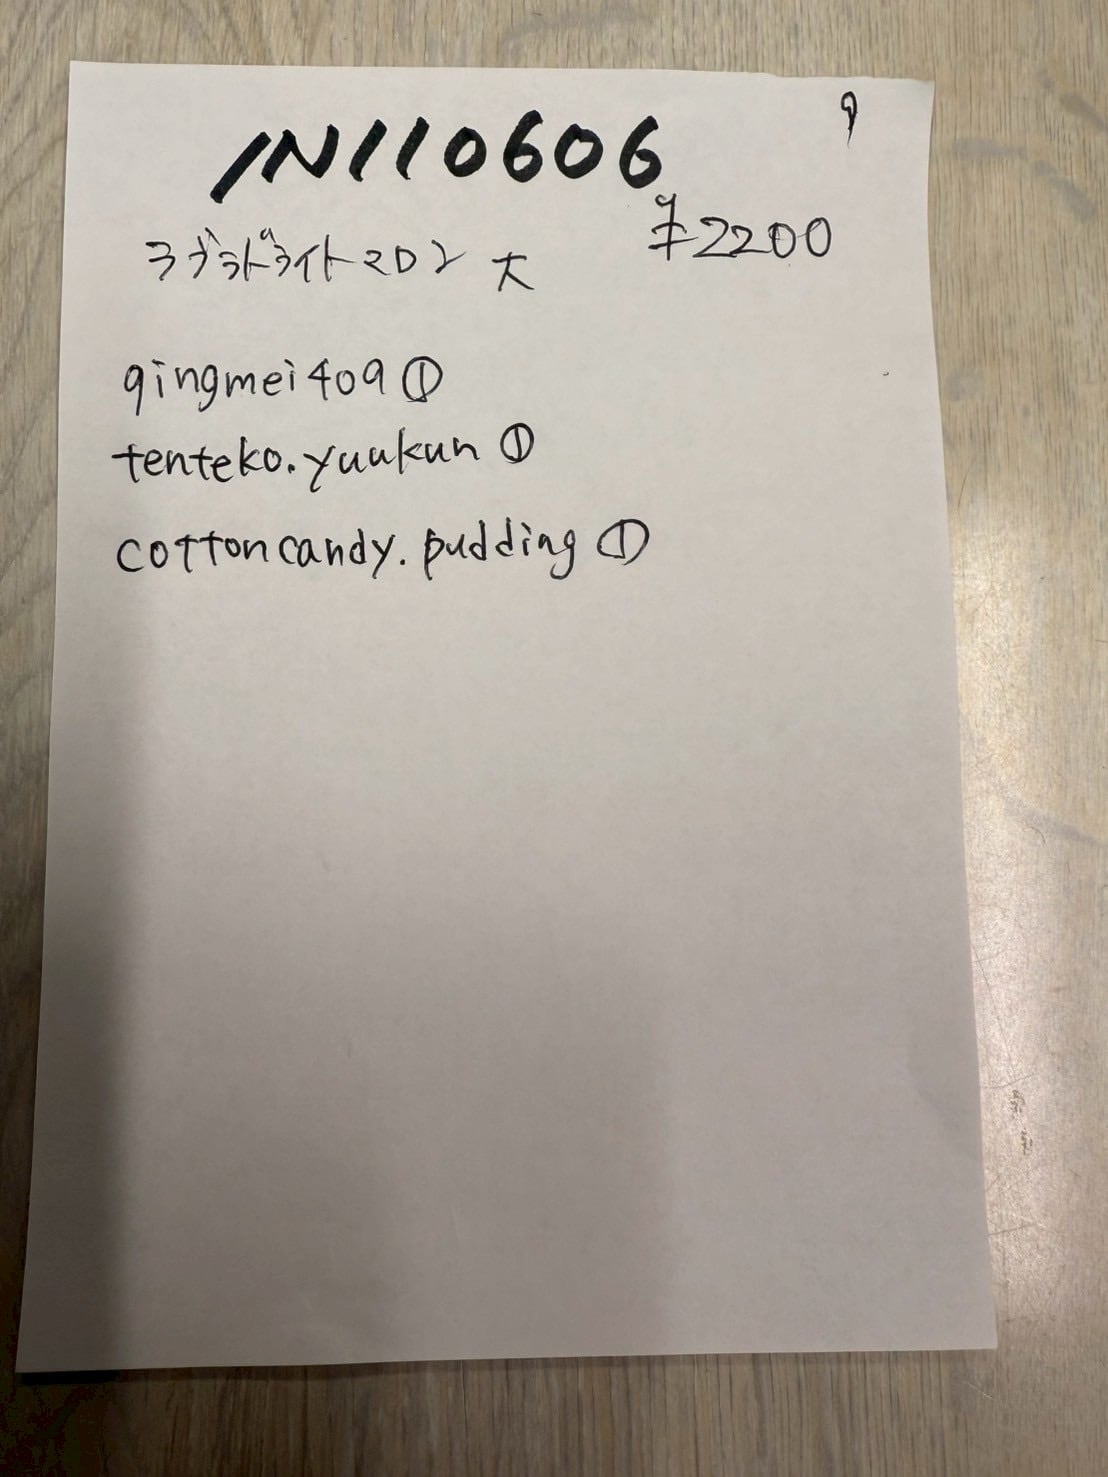 9
IN110606
¥2200
ラブラドライトマロン 大
qingmei409 ①
tenteko.yuukun ①
cottoncandy.pudding ①